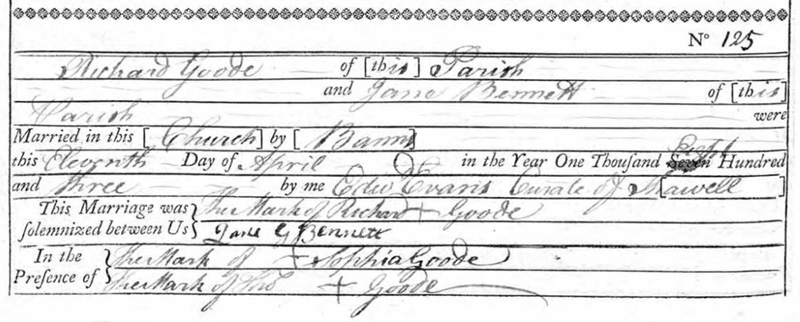 Nº 125
Richard Goode of [this] Parish
and Jane Bennett of [this]
Parish were
Married in this [Church] by [Banns]
this Eleventh Day of April in the Year One Thousand Seven Eight Hundred
and three by me Edw Evans Curate of
This Marriage was solemnized between Us } The Mark of Richard + Goode
Jane G Bennett
In the Presence of } The Mark of + Sophia Goode
The Mark of + Goode